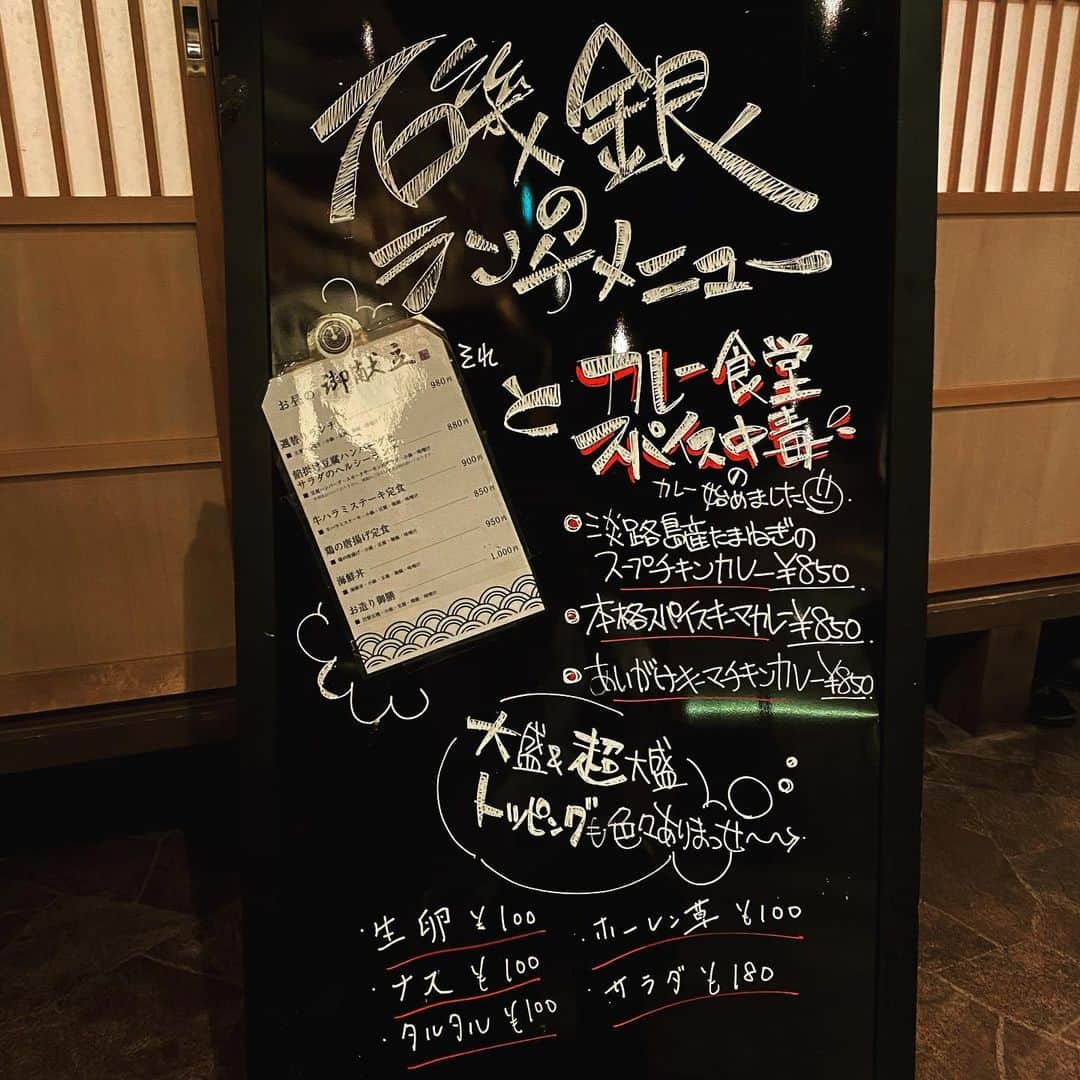 磯銀
の
ランチメニュー
お昼の 御献立
980円
880円
サラダのヘルシー
900円
牛ハラミステーキ定食
850円
鶏の唐揚げ定食
950円
海鮮丼
1,000円
お造り御膳
それ
と
カレー食堂
スパイス中毒
の
カレー始めました
淡路島産たまねぎの
スープチキンカレー ¥850
本格スパイスキーマカレー ¥850
あいがけキーマチキンカレー ¥850
大盛&超大盛
トッピングも色々ありまっせ〜
・生卵 ¥100
・ホーレン草 ¥100
・ナス ¥100
・サラダ ¥180
・タルタル ¥100